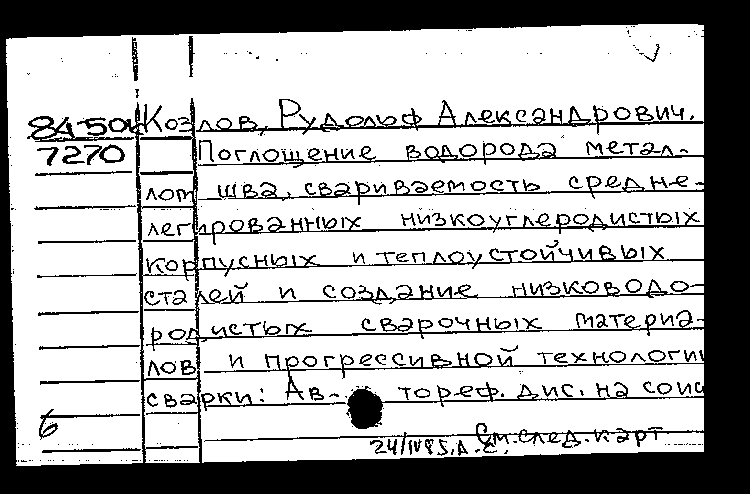 84-504 Козлов, Рудольф Александрович.
7270 Поглощение водорода метал-
лом шва, свариваемость средне-
легированных низкоуглеродистых
корпусных и теплоустойчивых
сталей и создание низководо-
родистых сварочных материа-
лов и прогрессивной технологии
сварки: Ав- тореф. дис. на соис
6 См. след. карт
24/IV85